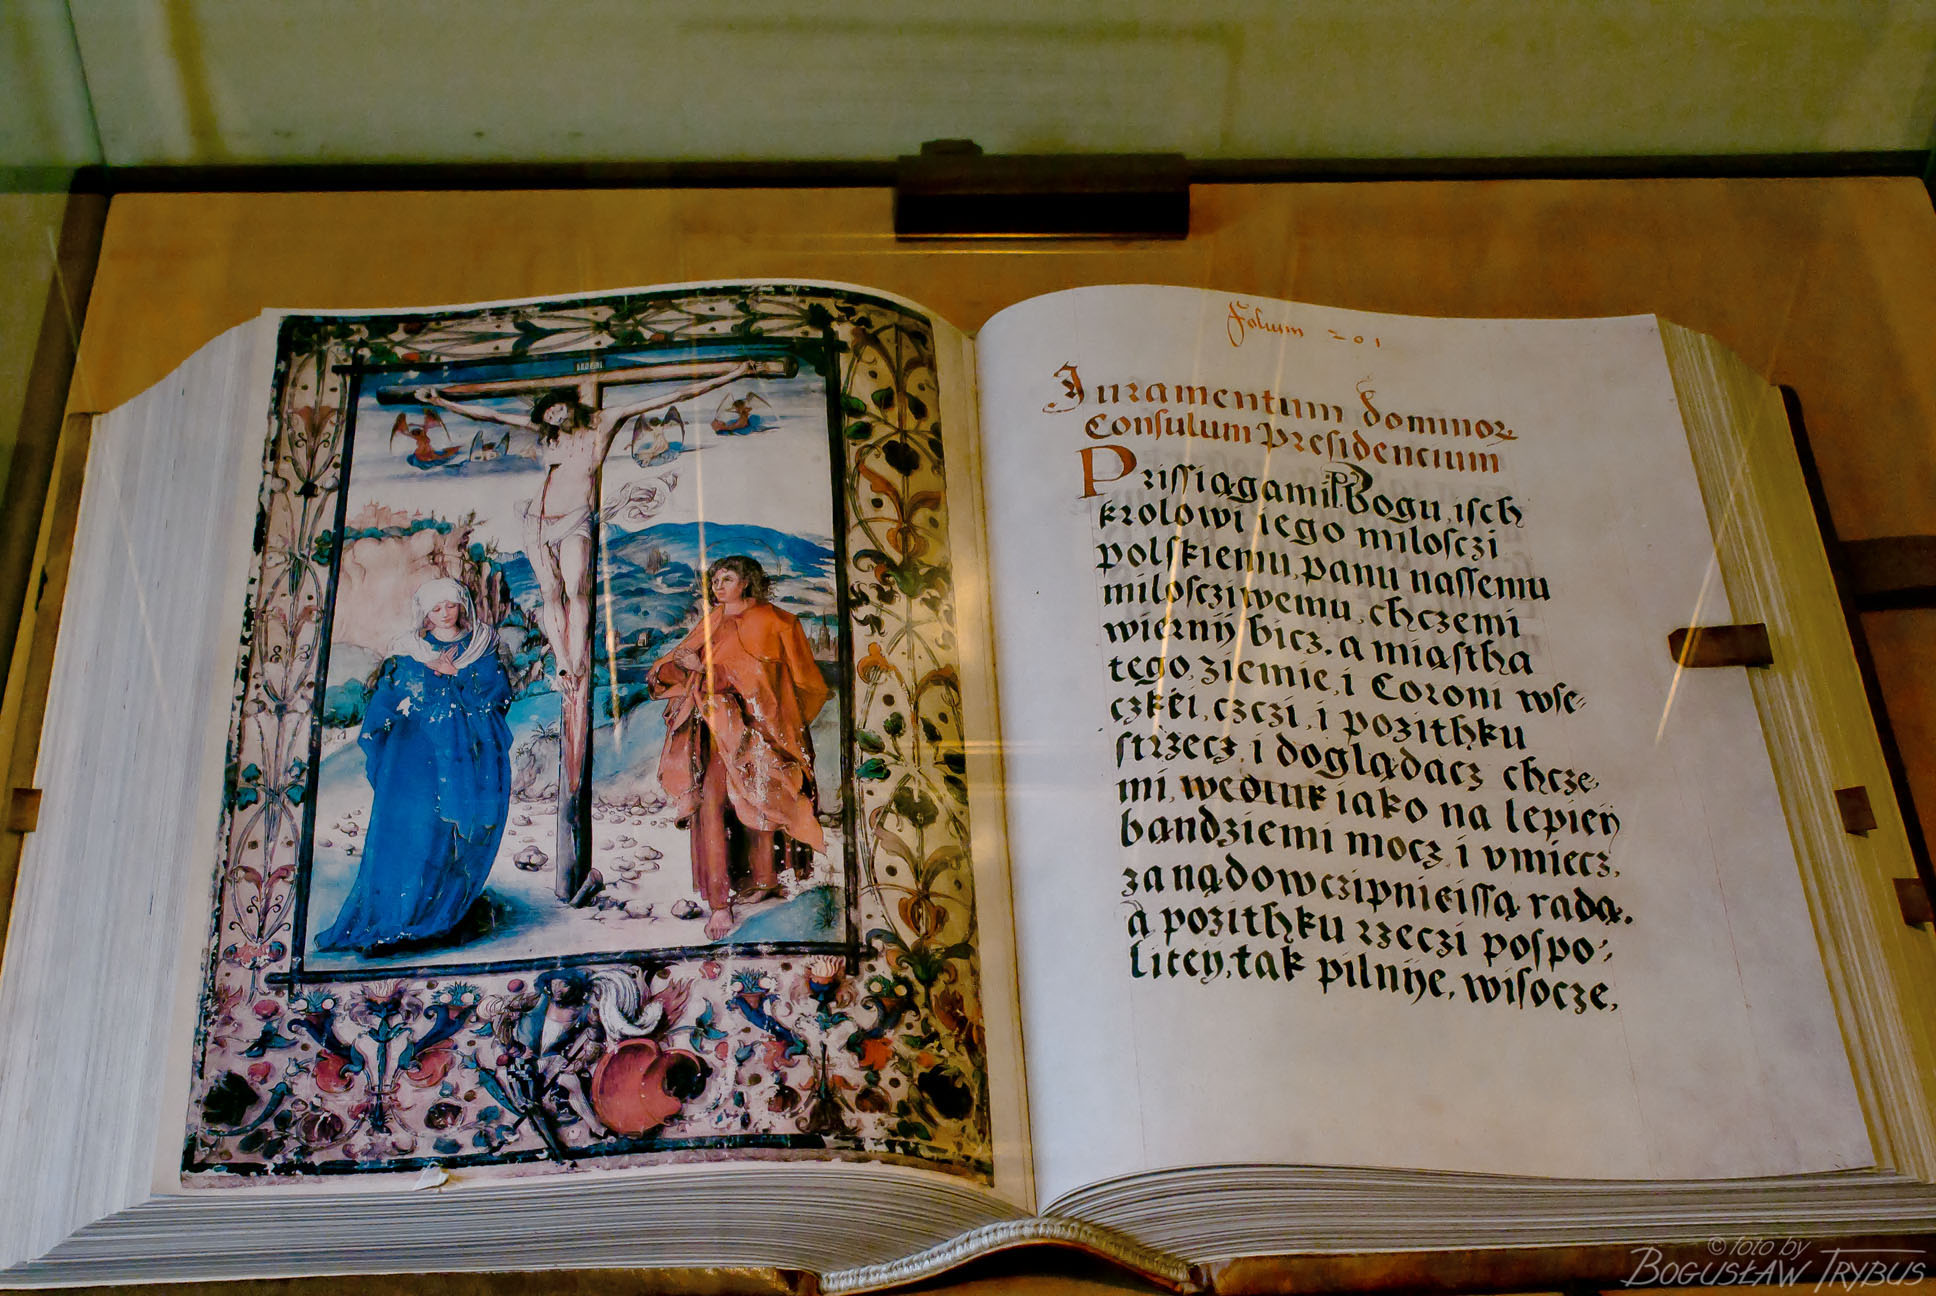 INRI
Folium 201
Iuramentum dominoꝝ
Consulum presidencium
Prziſſiągamÿ P. Bogu, iſch
krolowi iego miloſczi
polſkiemu, panu naſſemu
miloſcziwemu, chczemi
wiernÿ bicz, a miąſtha
tego, ziemie, i Coroni wſe⸗
czkėi, czczi, i pozithku
ſtrzecz, i doglądacz chcze,
mi, wedluk iako na lepieÿ
bąndziemi mocz, i vmiecz,
za nądowczipnieiſſą radą.
a pozithku rzeczi poſpo⸗
liteÿ, tak pilnÿe, wiſocze,
© foto by
BOGUSŁAW TRYBUS